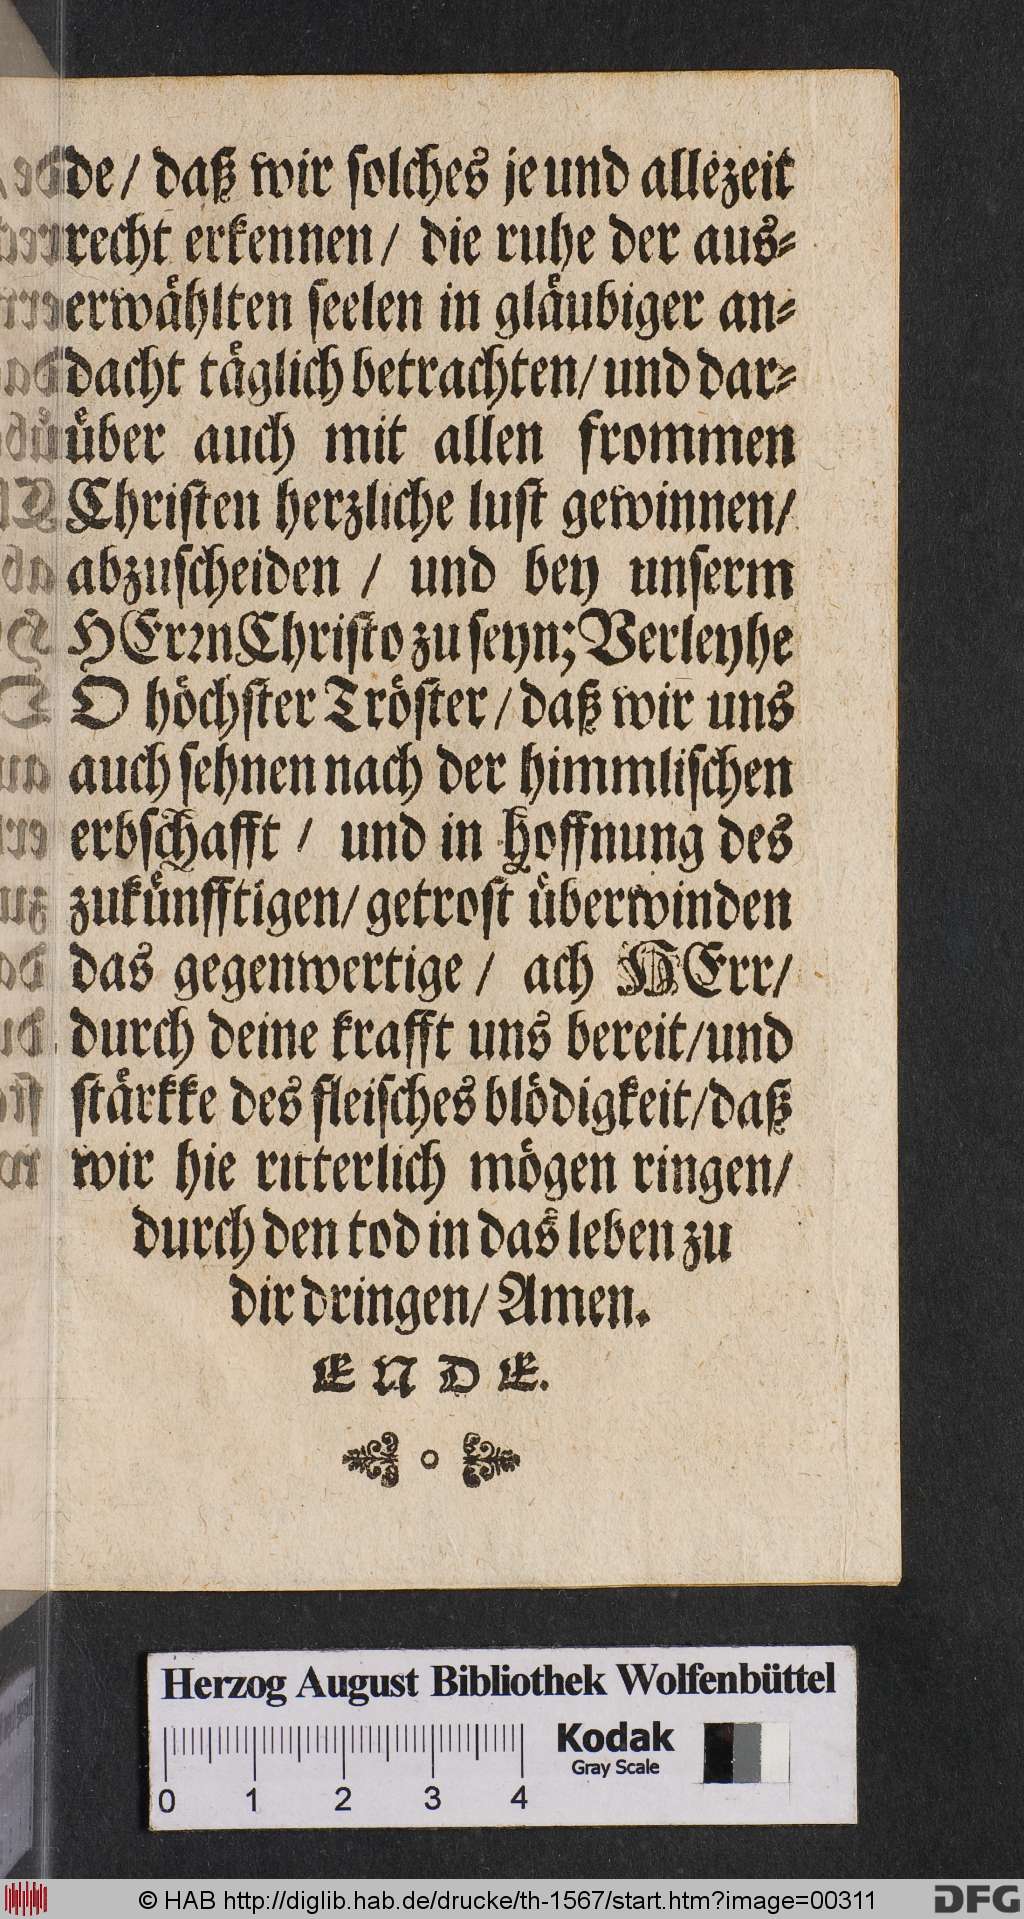 de / daß wir solches je und allezeit
recht erkennen / die ruhe der aus-
erwåhlten seelen in glåubiger an-
dacht tåglich betrachten / und dar-
ůber auch mit allen frommen
Christen herzliche lust gewinnen /
abzuscheiden / und bey unserm
HErꝛn Christo zu seyn; Verleyhe
O höchster Tröster / daß wir uns
auch sehnen nach der himmlischen
erbschafft / und in Hoffnung des
zukůnfftigen / getrost ůberwinden
das gegenwertige / ach HErr /
durch deine krafft uns bereit / und
stårkke des fleisches blödigkeit / daß
wir hie ritterlich mögen ringen /
durch den tod in das leben zu
dir dringen / Amen.
ENDE.
Herzog August Bibliothek Wolfenbüttel
Kodak
Gray Scale
0 1 2 3 4
© HAB http://diglib.hab.de/drucke/th-1567/start.htm?image=00311
DFG